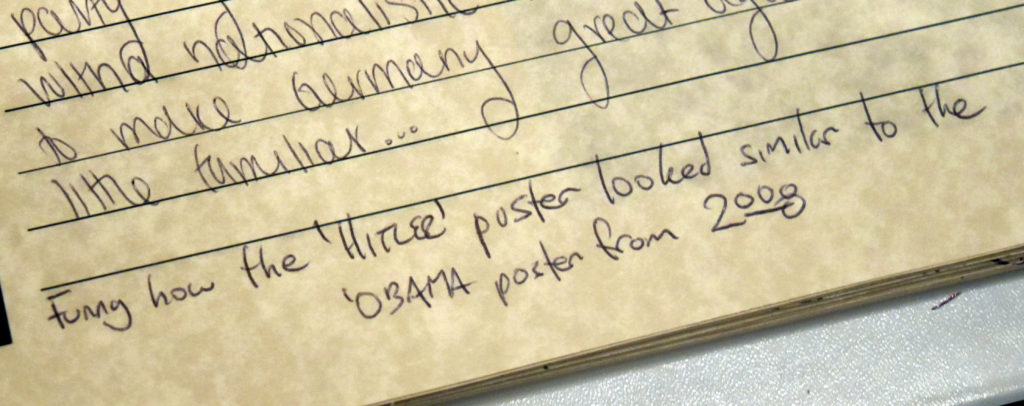 party
wilmd nationalistic
to make Germany great aga
little familiar...
Funny how the 'HITLER' poster looked similar to the
'OBAMA poster from 2008